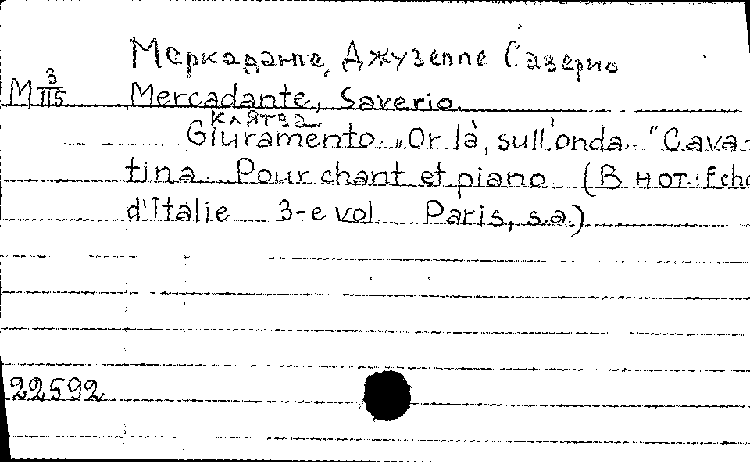 Меркаданте, Джузеппе Саверио
М 3/II5 Mercadante, Saverio.
Клятва
Giuramento. „Or là, sull'onda." Cava-
tina. Pour chant et piano (В нот.: Echo
d'Italie 3-e vol Paris, s.a.)
22592